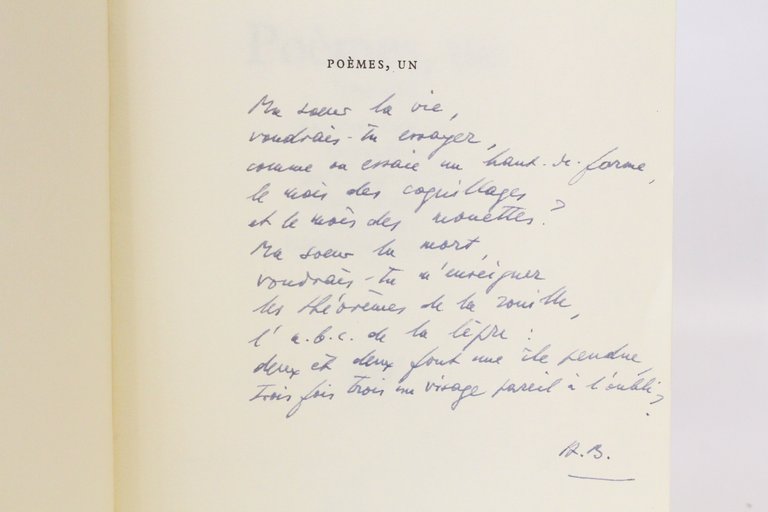 POÈMES, UN
Ma soeur la vie,
voudrais-tu essayer,
comme on essaie un haut-de-forme,
le mois des coquillages
et le mois des mouettes?
Ma soeur la mort,
voudrais-tu m'enseigner
les théorèmes de la rouille,
l'a.b.c. de la lèpre :
deux et deux font une île pendue,
trois fois trois un visage pareil à l'oubli?
A.B.